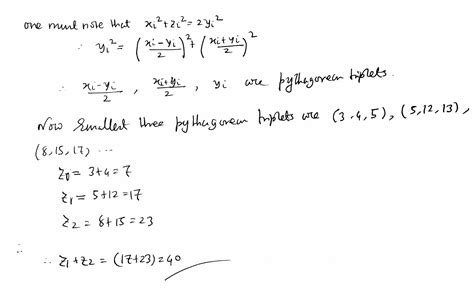 one must note that xi² + zi² = 2yi²
∴ yi² = (xi-yi/2)² + (xi+yi/2)²
∴ xi-yi/2 , xi+yi/2 , yi are pythagorean triplets.
Now Smallest three pythagorean triplets are (3,4,5), (5,12,13),
(8,15,17) ...
z0 = 3+4 = 7
z1 = 5+12 = 17
z2 = 8+15 = 23
∴
∴ z1+z2 = (17+23) = 40